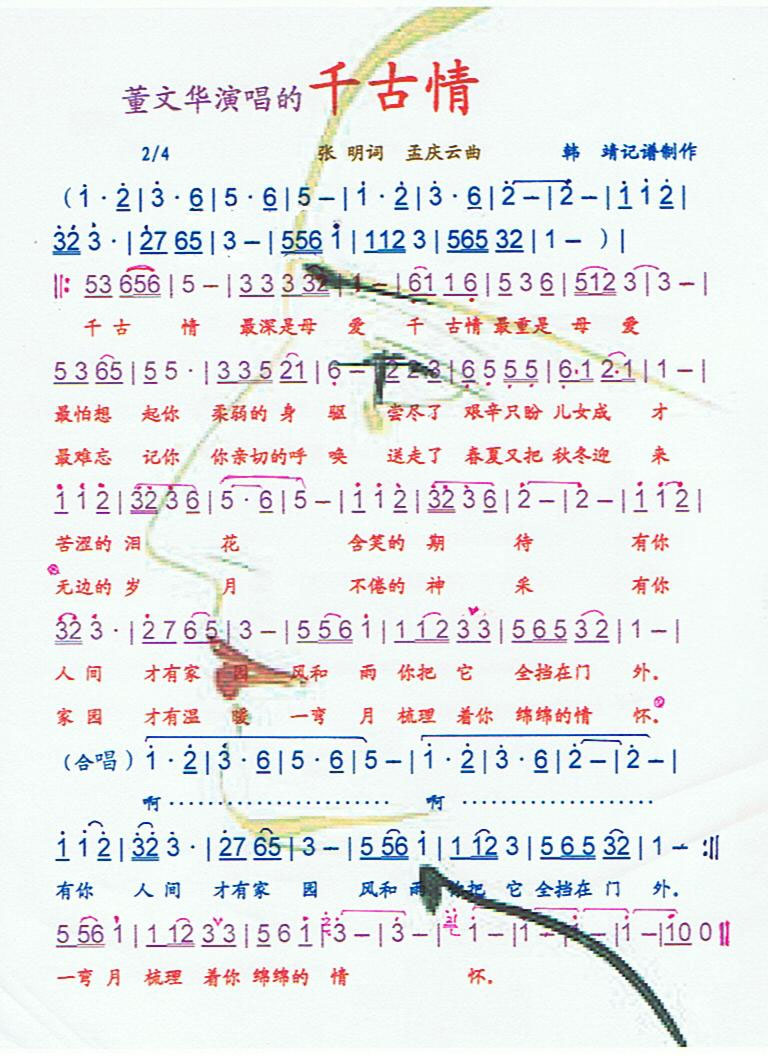 董文华演唱的千古情
2/4 张 明词 孟庆云曲 韩 靖记谱制作
( i̇ · 2̇ | 3̇ · 6 | 5 · 6 | 5 – | i̇ · 2̇ | 3̇ · 6 | 2̇ – | 2̇ – | i̇ i̇ 2̇ |
3̇2̇ 3̇ · | 2̇7 65 | 3 – | 556 i̇ | 112 3 | 565 32 | 1 – ) |
‖: 53 656 | 5 – | 3 3 3 32 | 1 – | 6̣1 1 6̣ | 5 3 6 | 512 3 | 3 – |
千 古 情 最深是母 爱 千 古情 最重是 母 爱
5 3 65 | 5 5 · | 3 3 5 21 | 6̣ – | 2 2 3 | 6̣ 5̣ 5̣ 5̣ | 6̣·1 2·1 | 1 – |
最怕想 起你 柔弱的 身 驱 尝尽了 艰辛只盼 儿女成 才
最难忘 记你 你亲切的呼 唤 送走了 春夏又把 秋冬迎 来
i̇ i̇ 2̇ | 3̇2̇ 3̇ 6 | 5 · 6 | 5 – | i̇ i̇ 2̇ | 3̇2̇ 3̇ 6 | 2̇ – | 2̇ – | i̇ i̇ 2̇ |
苦涩的 泪 花 含笑的 期 待 有你
无边的 岁 月 不倦的 神 采 有你
3̇2̇ 3̇ · | 2̇ 7 6 5 | 3 – | 5 5 6 i̇ | 1 1 2 3 3 | 5 6 5 3 2 | 1 – |
人 间 才有家 园 风和 雨 你把 它 全挡在门 外。
家 园 才有温 暖 一弯 月 梳理 着你 绵绵的情 怀。
(合唱) i̇ · 2̇ | 3̇ · 6 | 5 · 6 | 5 – | i̇ · 2̇ | 3̇ · 6 | 2̇ – | 2̇ – |
啊······················ 啊 ···················
i̇ i̇ 2̇ | 3̇2̇ 3̇ · | 2̇7 65 | 3 – | 5 56 i̇ | 1 12 3 | 5 6 5 32 | 1 – :‖
有你 人 间 才有家 园 风和 雨 你把 它 全挡在 门 外。
5 56 i̇ | 1 12 3 3 | 5 6 i̇ | 3̇ – | 3̇ – | i̇ – | i̇ – | i̇ – | i̇ – | i̇0 0 ‖
一弯 月 梳理 着你 绵绵的 情 怀。